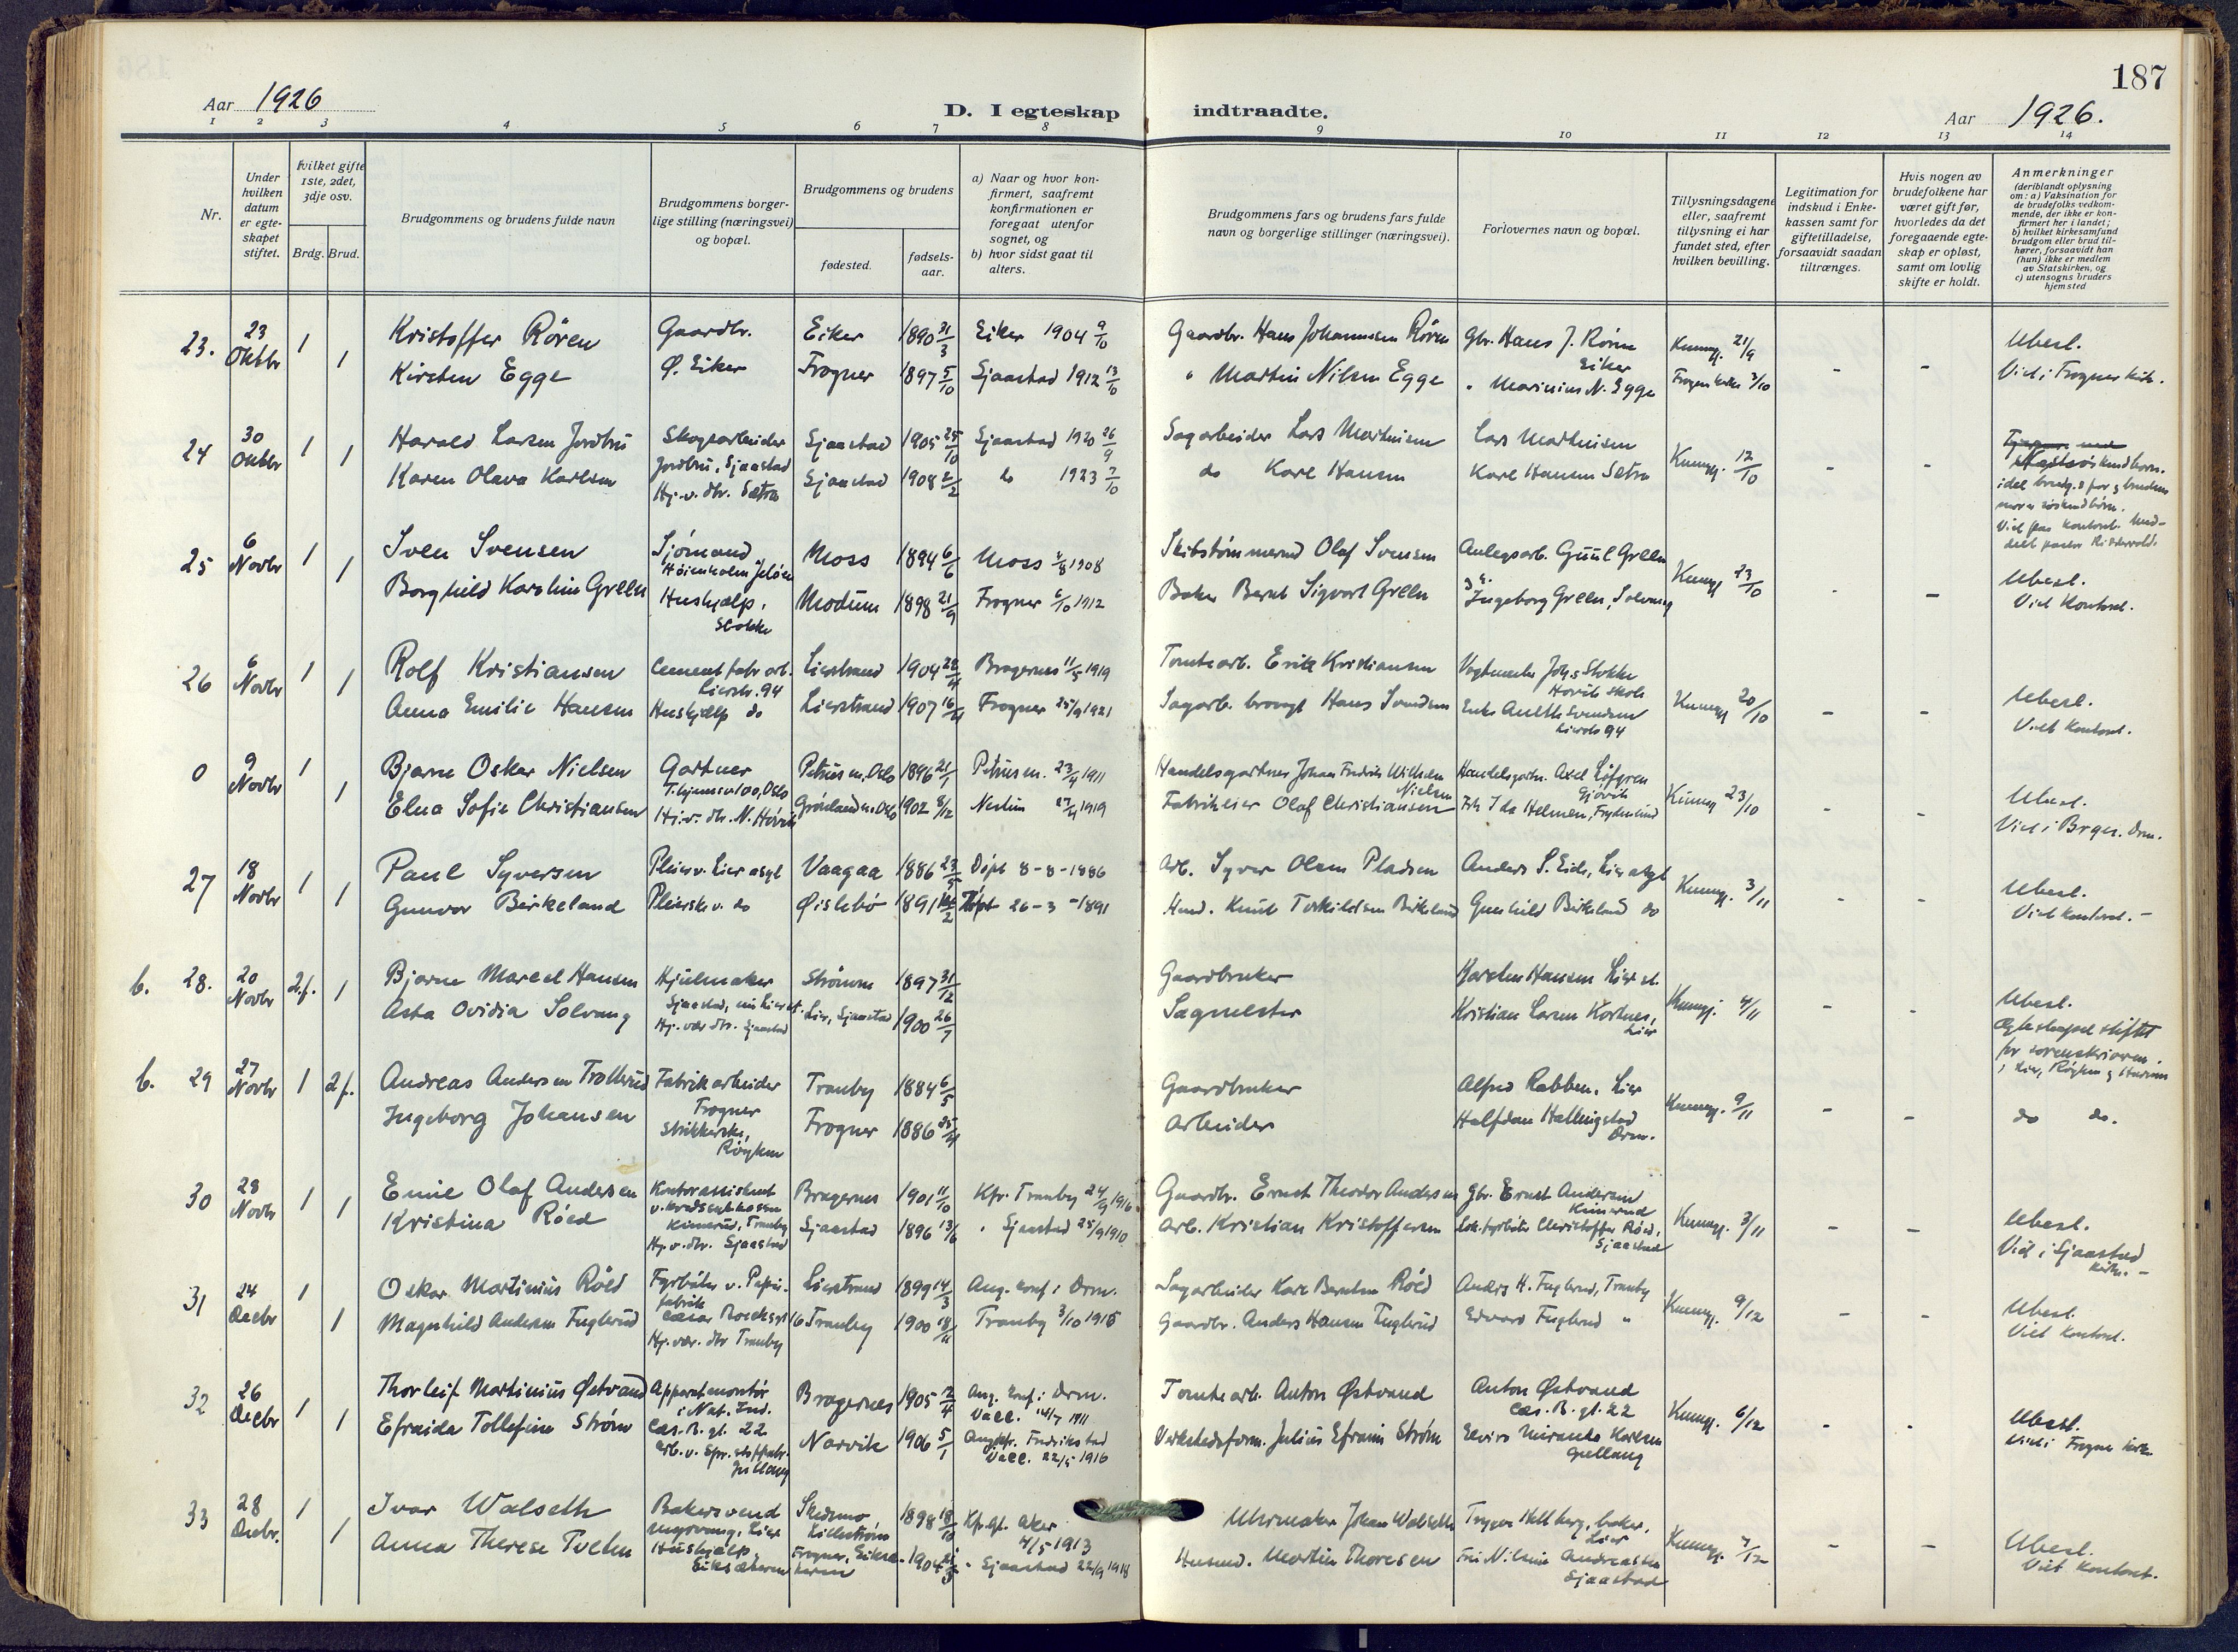 187
Aar 1926
D. I egteskap indtraadte.
Aar 1926.
1 2 3 4 5 6 7 8 9 10 11 12 13 14
Nr.
Under hvilken datum er egteskapet stiftet.
Hvilket gifte 1ste, 2det, 3dje osv.
Brdg. Brud.
Brudgommens og brudens fulde navn
Brudgommens borgerlige stilling (næringsvei) og bopæl.
Brudgommens og brudens
fødested.
fødselsaar.
a) Naar og hvor konfirmert, saafremt konfirmationen er foregaat utenfor sognet, og
b) hvor sidst gaat til alters.
Brudgommens fars og brudens fars fulde navn og borgerlige stillinger (næringsvei).
Forlovernes navn og bopæl.
Tillysningsdagene eller, saafremt tillysning ei har fundet sted, efter hvilken bevilling.
Legitimation for indskud i Enkekassen samt for giftetilladelse, forsaavidt saadan tiltrænges.
Hvis nogen av brudefolkene har været gift før, hvorledes da det foregaaende egteskap er opløst, samt om lovlig skifte er holdt.
Anmerkninger
(deriblandt oplysning om: a) Vaksination for de brudefolks vedkommende, der ikke er konfirmert her i landet; b) hvilket kirkesamfund brudgom eller brud tilhører, forsaavidt han (hun) ikke er medlem av Statskirken, og c) utensogns bruders hjemsted
23. 23 Oktbr 1 Kristoffer Rören Gaardbr. Eiker 1890 31/3 Eiker 1904 9/10 Gaardbr. Hans Johannsen Rören Gbr. Hans J. Rören Eiker Kunngj. 21/9 Ubesl.
1 Kirsten Egge Ø. Eiker Frogner 1897 5/10 Sjaastad 1912 13/10 " Martin Nilsen Egge " Marinius N. Egge Frogner kirke 3/10 - - Viet i Frogner kirk.
24 30 Oktbr 1 Harald Larsen Jordbru Skogsarbeider Jordbru, Sjaastad Sjaastad 1905 25/10 Sjaastad 1920 26/9 Sagarbeider Lars Martinisen Lars Mathisen Kunngj. 12/10 - -
1 Karen Olava Karlsen Hj. v. dtr. Sætra Sjaastad 1908 2/2 do 1923 7/10 do Karl Hansen Karl Hansen Sætra
25 6 Novbr 1 Sven Svensen Sjömand Höienholm Jelöen Moss 1894 6/6 Moss 1908 Skibstömmermd Olaf Svensen Anlegsarb. Guul Grelln Kunngj 23/10 - - Ubesl.
1 Borghild Karoline Grelln Hushjælp, Stokke Modum 1898 21/9 Frogner 6/10 1912 Baker Bernt Sigvart Grelln Ingeborg Grelln, Solvang Viet Kontoret.
26 6 Novbr 1 Rolf Kristiansen Cementfabr arb. Lierstr. 94 Lierstrand 1904 Bragernes 11/5 1919 Tomtearb. Erik Kristiansen Vagtmester Johs Stokke Hovik skole Kunngj 20/10 - - Ubesl.
1 Anna Emilie Hansen Hushjælp do Lierstrand 1907 Frogner 25/9 1921 Sagarb. Hans Svendsen Enke Anette Svendsen Lierstr 94 Viet Kontoret.
0 9 Novbr 1 Bjarne Oskar Nielsen Gartner 100, Oslo Petrus m. Oslo 1896 21/1 Petrus m. 23/4 1911 Handelsgartner Johan Fredrik Wilhelm Nielsen Handelsgartn. Axel Löfgren Gjövik Kunngj 23/10 - Ubesl.
1 Elna Sofie Christiansen Hj. v. dtr. N. Hövik Grönland m. Oslo 1902 8/12 27/4 1919 Fabrikeier Olaf Christiansen Frk Ida Helmen, Frydenlund Viet i Brgn. Drm.
27 18 Novbr 1 Paul Syversen Pleier v. Lier asyl Vaagaa 1886 Döpt 8-8-1886 Arb. Syver Olsen Pladsen Anders S. Eide, Lier asyl Kunngj. 3/11 - - Ubesl.
1 Gunvor Birkeland Pleierske v. do Øislebö 1891 Döpt 26-3-1891 Husmd. Knut Terkildsen Birkeland Gunhild Birkeland do Viet kontoret. -
b. 28. 20 Novbr 2.f. Bjarne Marcel Hansen Hjulmaker Sjaastad, nu Lier st. Strömm 1897 31/12 Gaardbruker Karsten Hansen Lier st. Kunngj. 4/11 - - Ubesl.
1 Asta Ovidia Solvang Hj. vær dtr. Sjaastad Lier, Sjaastad 1900 26/7 Sagmester Kristian Larsen Kortnes, Lier Ægteskapet stiftet for sorenskriveren i Lier, Röyken og Hurum
b. 29 27 Novbr 1 Andreas Andersen Trollerud Fabrikarbeider Frogner Tranby 1884 6/5 Gaardbruker Alfred Rabben, Lier Kunngj. 9/11 - - do do.
2f. Ingeborg Johansen Strikkerske, Röyken Frogner 1886 Arbeider Halfdan Hallingstad Drm.
30 28 Novbr 1 Emil Olaf Andersen Kontorassistent v. kredsykekassen Kinnerud, Tranby Bragernes 1901 11/10 Kfr. Tranby 24/9 1916 Gaardbr. Ernst Theodor Andersen Gbr. Ernst Andersen Kinnerud Kunngj. 3/11 - - Ubesl.
1 Kristina Röed Hj. v. dtr. Sjaastad Sjaastad 1896 13/6 " Sjaastad 25/9 1910 Arb. Kristian Kristoffersen Lok. fyrböter Christoffer Röed, Sjaastad Viet i Sjaastad kirke. -
31 24 Decbr 1 Oskar Martinius Röed Fyrböter v. Papirfabrik Lierstrand 1899 14/3 Ang. konf. i Drm. Sagarbeider Karl Bernhn Röed Anders H. Fuglerud, Tranby Kunngj. 9/12 - - Ubesl.
1 Magnhild Andersen Fuglerud Hj. vær. dtr Tranby Tranby 1900 18/11 Tranby 3/10 1915 Gaardbr. Anders Hansen Fuglerud Edvard Fuglerud " Viet kontoret.
32 26 Decbr 1 Thorleif Martinius Østvand Apparatmontör i Nat. Ind. Cas. B. gt. 22 Bragernes 1905 2/4 Ang. konf. i Drm. Vacc. 1911 Tomtearb. Anton Østvand Anton Østvand Cas. B. gt. 22 Kunngj. 6/12 - - Ubesl.
1 Efraida Tollefine Ström Gullaug Narvik 1906 5/1 Ang. kfr. Fredrikstad Vacc. 22/5 1916 Verkstedsform. Julius Efraim Ström Elvira Miranda Karlsen Gullaug Viet i Frogner kirke
33 28 Decbr. 1 Ivar Walseth Bakersvend Myrvang, Lier Skedsmo Lilleström 1898 18/10 Kfr. Aker 4/5 1913 Uhrmaker Johan Walseth Trygve Hellberg, baker, Lier Kunngj. 7/12 - - Ubesl.
1 Anna Therese Tveten Hushjælp, Eiksæteren Frogner, Eiksæteren 1904 " Sjaastad 22/9 1918 Husmd. Martin Thoresen Frk Nilsine Andreassen Sjaastad Viet kontoret.